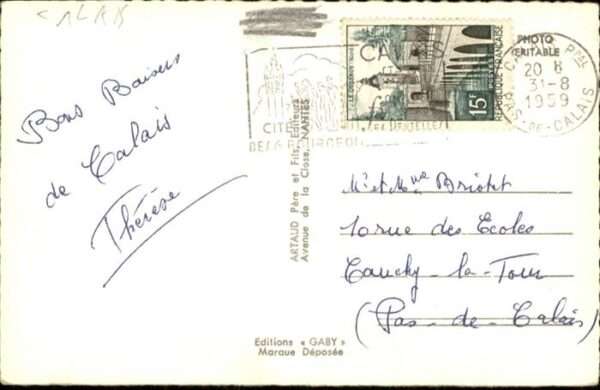 Bons Baisers
de Calais
Thérèse
ARTAUD Père et Fils, Editeurs
Avenue de la Close, NANTES
Editions « GABY »
Marque Déposée
LE QUESNOY
15F
REPUBLIQUE FRANÇAISE
PHOTO
VERITABLE
CALAIS PPAL
20 H
31-8
1959
PAS-DE-CALAIS
CITE
DES 6 BOURGEOIS
Mr et Mme Briotet
10 rue des Ecoles
Cauchy-la-Tour
(Pas-de-Calais)